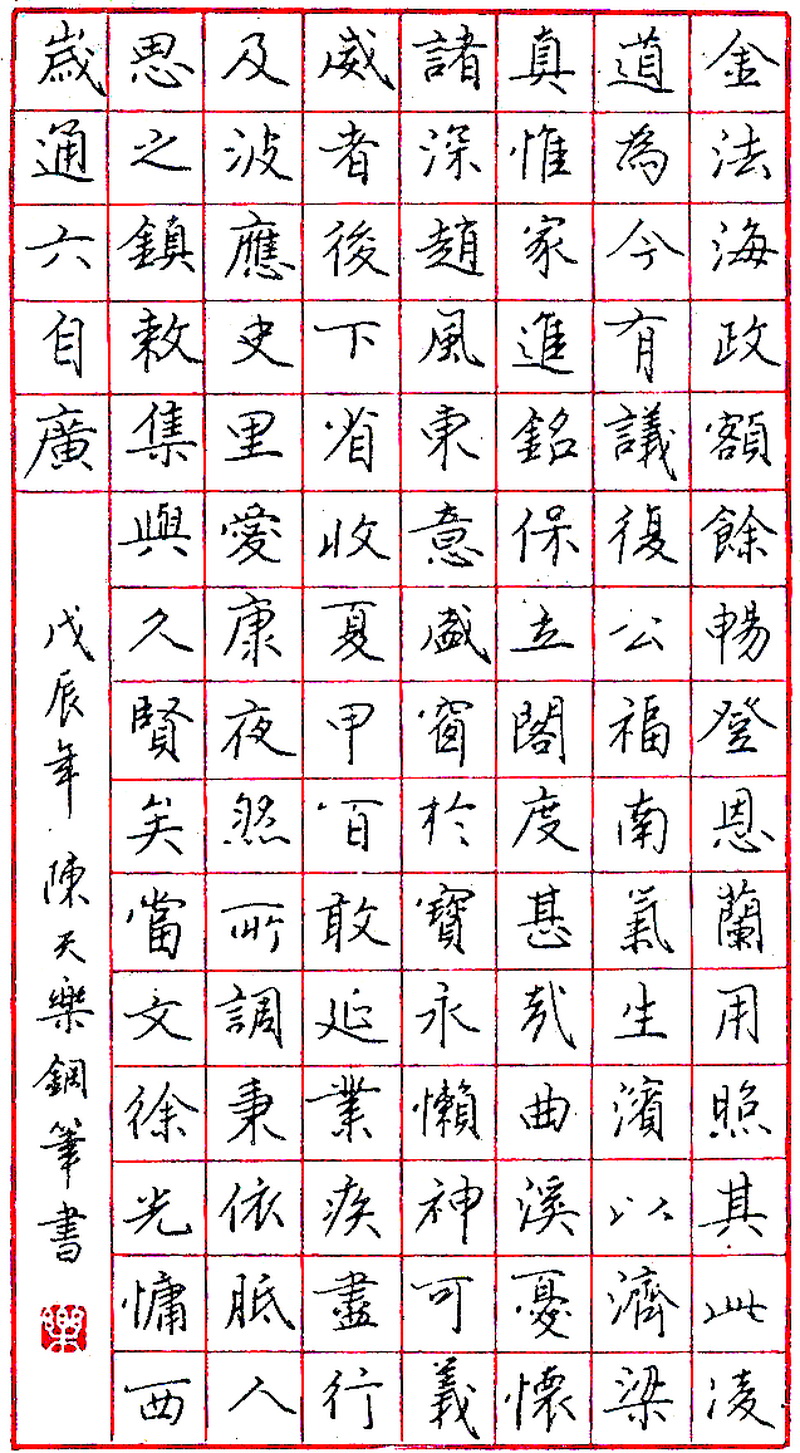 金法海政額餘暢登恩蘭用照其此凌
道為今有議復公福南氣生濱以濟梁
真惟家進銘保立閣度甚哉曲溪憂懷
諸深趙風東意盛窗於寶永懶神可義
威者後下省收夏甲百敢延業疾盡行
及波應史里愛康夜然所調秉依眡人
思之鎮敕集與久賢矣當文徐光慵西
歲通六自廣
戊辰年陳天樂鋼筆書
樂